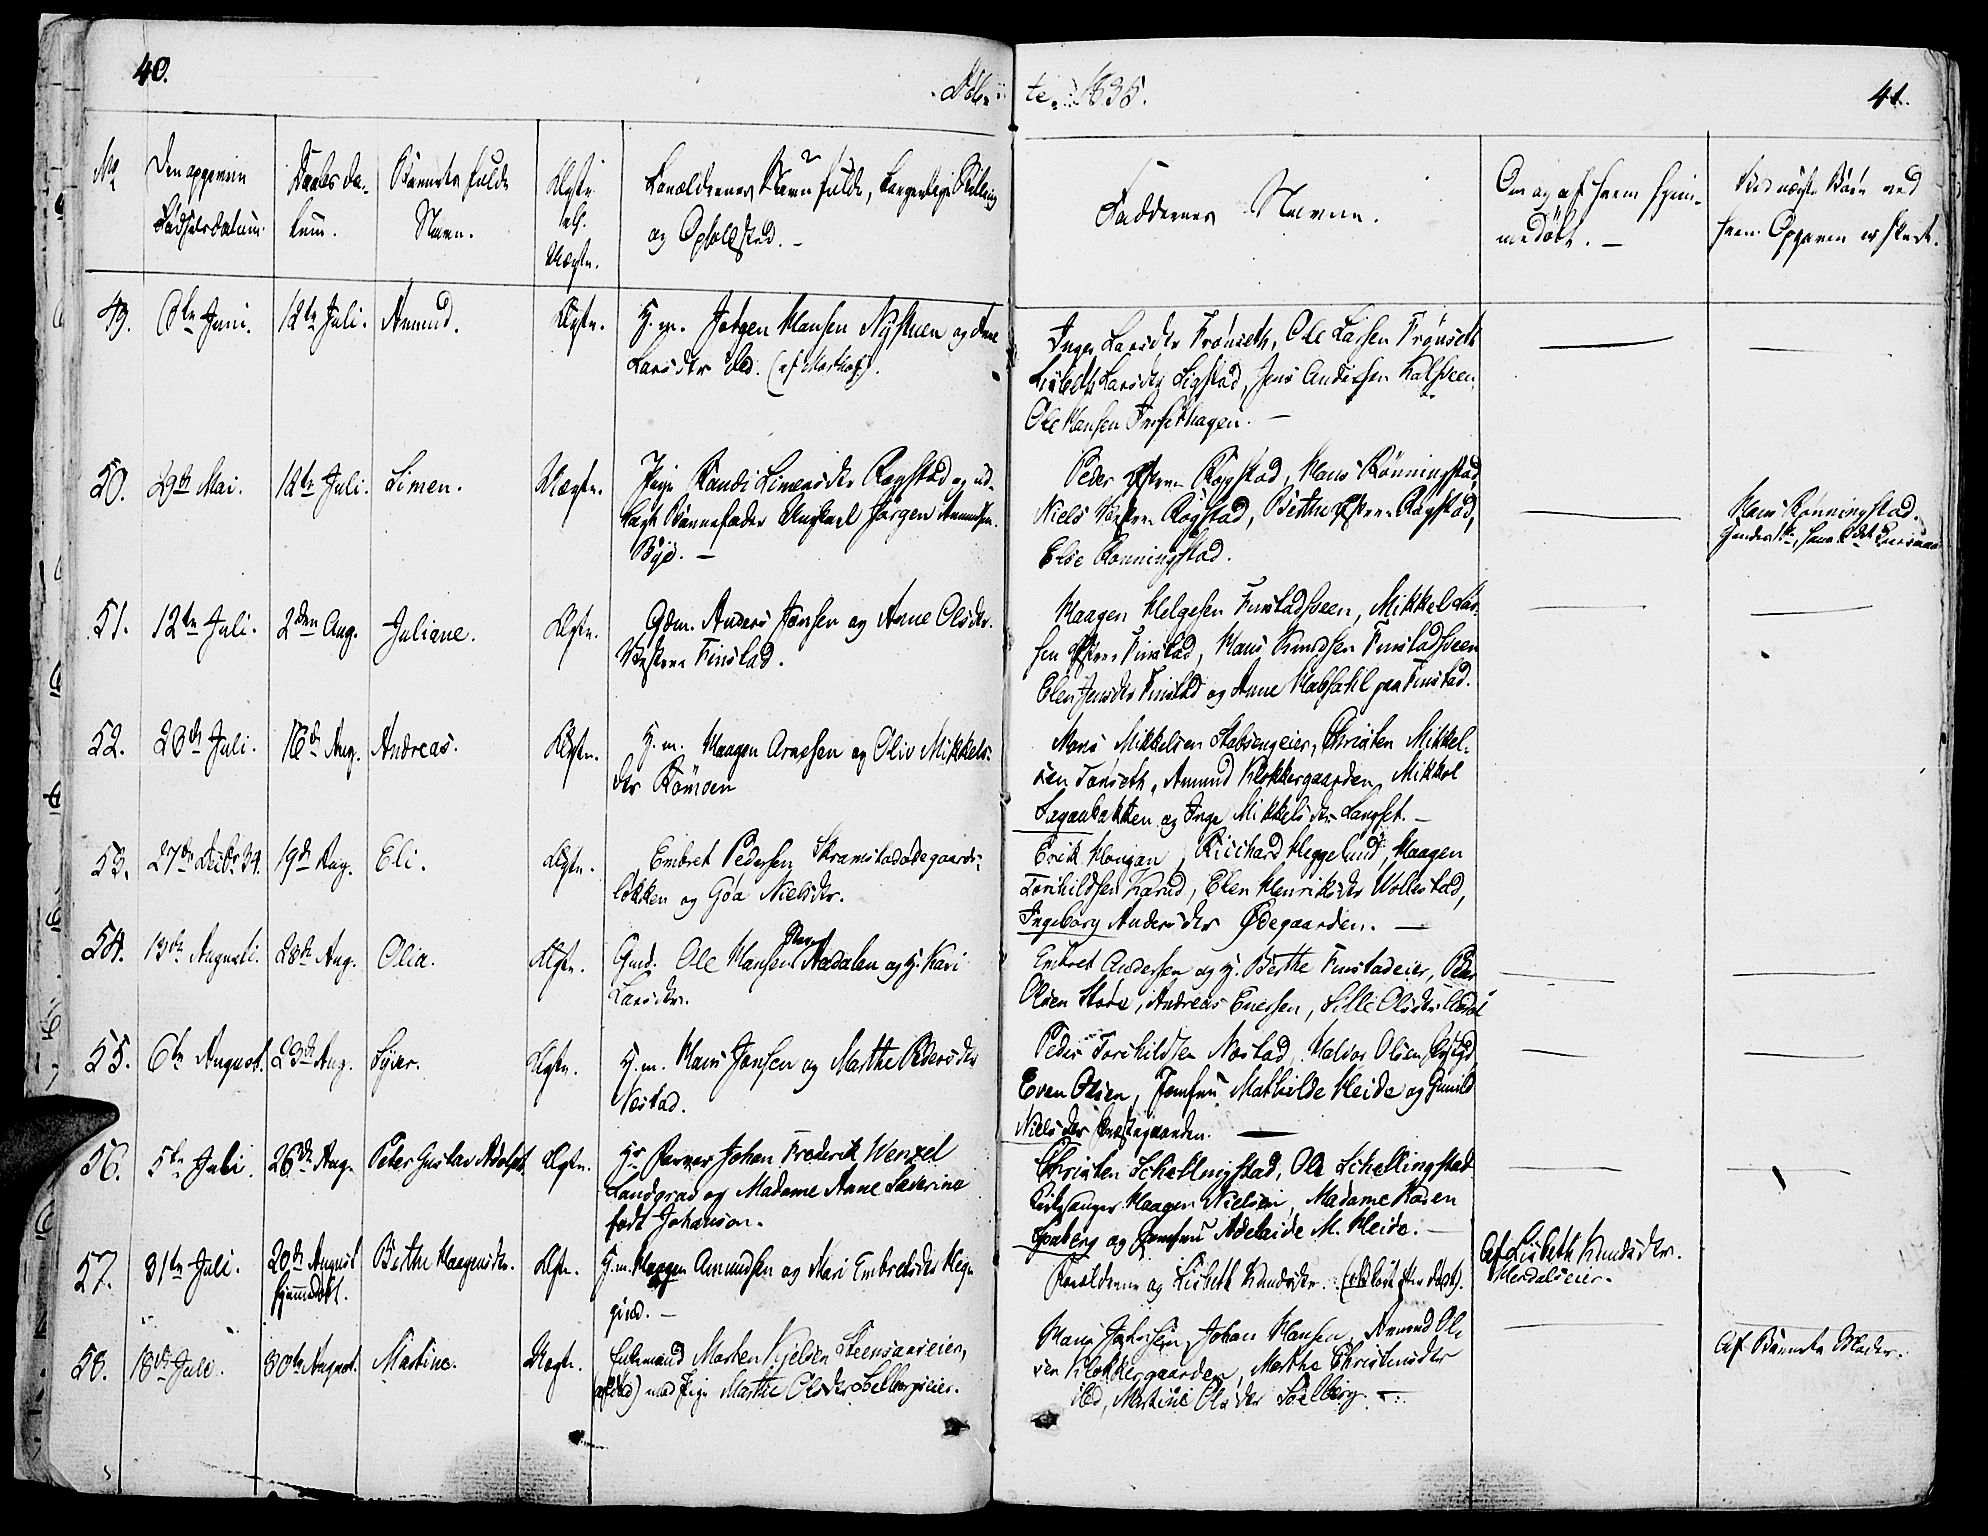 40.
Døb-
te 1835.
41.
No
Den opgivne
Fødselsdatum.
Daabs Da-
tum.
Barnets fulde
Navn.
Ægte
ell.
Uægte.
Forældrenes Navn fulde, borgerlige Stilling
og Opholdsted. -
Faddernes Navne.
Om og af hvem hjem-
medøbt. -
49.
6te Juni.
12te Juli.
Amund.
Ægte.
H.m. Jørgen Hansen Nystuen og Anne
Larsdtr ibd.
Inger Larsdtr Frønseth, Ole Larsen Frønseth
Lisbeth Larsdtr Sigstad, Jens Andersen
Ole Hansen
50.
29de Mai.
12te Juli.
Simen.
Uægte.
Pige Randi Simensdtr Rogstad og ud-
lagt Barnefader Ungkarl Jørgen Amundsen
Bye. -
Peder Østre Rogstad, Hans Rønningstad,
Niels Vestre Rogstad, Berthe Østre Rogstad,
Else Rønningstad.
Hans Rønningstad.
51.
12te Juli.
2den Aug.
Juliane.
Ægte.
Gdm. Anders Jensen og Anne Olsdtr.
Vestre Finstad.
Haagen Helgesen Finstadsveen, Mikkel Lar-
sen Østre Finstad, Hans Knudsen Finstadsveen
Elen Jensdtr Finstad og Anne Mabsahl paa Finstad.
52.
26de Juli.
16de Aug.
Andreas.
Ægte.
H.m. Haagen Arnesen og Olio Mikkels-
dtr Rømoen
Hans Mikkelsen Stabsengeier, Christen Mikkel-
sen Torseth, Amund Klokkergaarden, Mikkel
Saganbakken og Inge Mikkelsdtr Langset. -
53.
27de Decbr 34.
19de Aug.
Eli.
Ægte.
Embret Pedersen Skramstadødegaards-
løkken og Göa Nielsdtr.
Erik Mongan, Ricchard Heggelund, Haagen
Torchildsen Karud, Elen Henriksdtr Wollestad,
Ingeborg Andersdtr Ødegaarden. -
54.
13de Augusti.
28de Aug.
Olia.
Ægte.
Gmd. Ole Hansen Aadalen og H. Kari
Larsdtr.
Embret Andersen og H. Berthe Finstadeier, Peder
Olsen Store, Andreas Enersen, Sille Olsdtr
55.
6te August.
23de Aug.
Syver.
Ægte.
H.m. Hans Jensen og Marthe Pedersdtr
Næstad.
Peder Torchildsen Næstad, Halvor Olsen
Even Olsen, Jomfru Mathilde Heide og Gunild
Nielsdtr Præstegaarden. -
56.
5te Juli.
26de Aug.
Peter Gustav Adolph
Ægte.
Hr Farver Johan Frederik Wenzel
Landgraf og Madame Anne Severine
født Johanson.
Christen Schellingstad, Ole Schellingstad
Kirkesanger Haagen Nielsen, Madame Koden
Sjøberg og Jomfru Adelaide M. Heide. -
57.
31te Juli.
20de August
hjemmedøbt.
Berthe Haagensdtr.
Ægte.
H.m. Haagen Amundsen og Mari Embretsdtr Heg-
gied. -
Forældrene og Lisbeth Knudsdtr.
Af Lisbeth Knudsdtr.
Mendalseier.
58.
18de Juli.
30te August.
Martine.
Uægte.
Enkemand Morten Kjelsen Steensaaseier,
afsked) med Pige Marthe Olsdtr Soelbergeier.
Hans Johnsen, Johan Hansen, Amund Ol-
sen Klokkergaarden, Marthe Christensdtr
ibd, Martine Olsdtr Soelberg.
Af Barnets Moder.